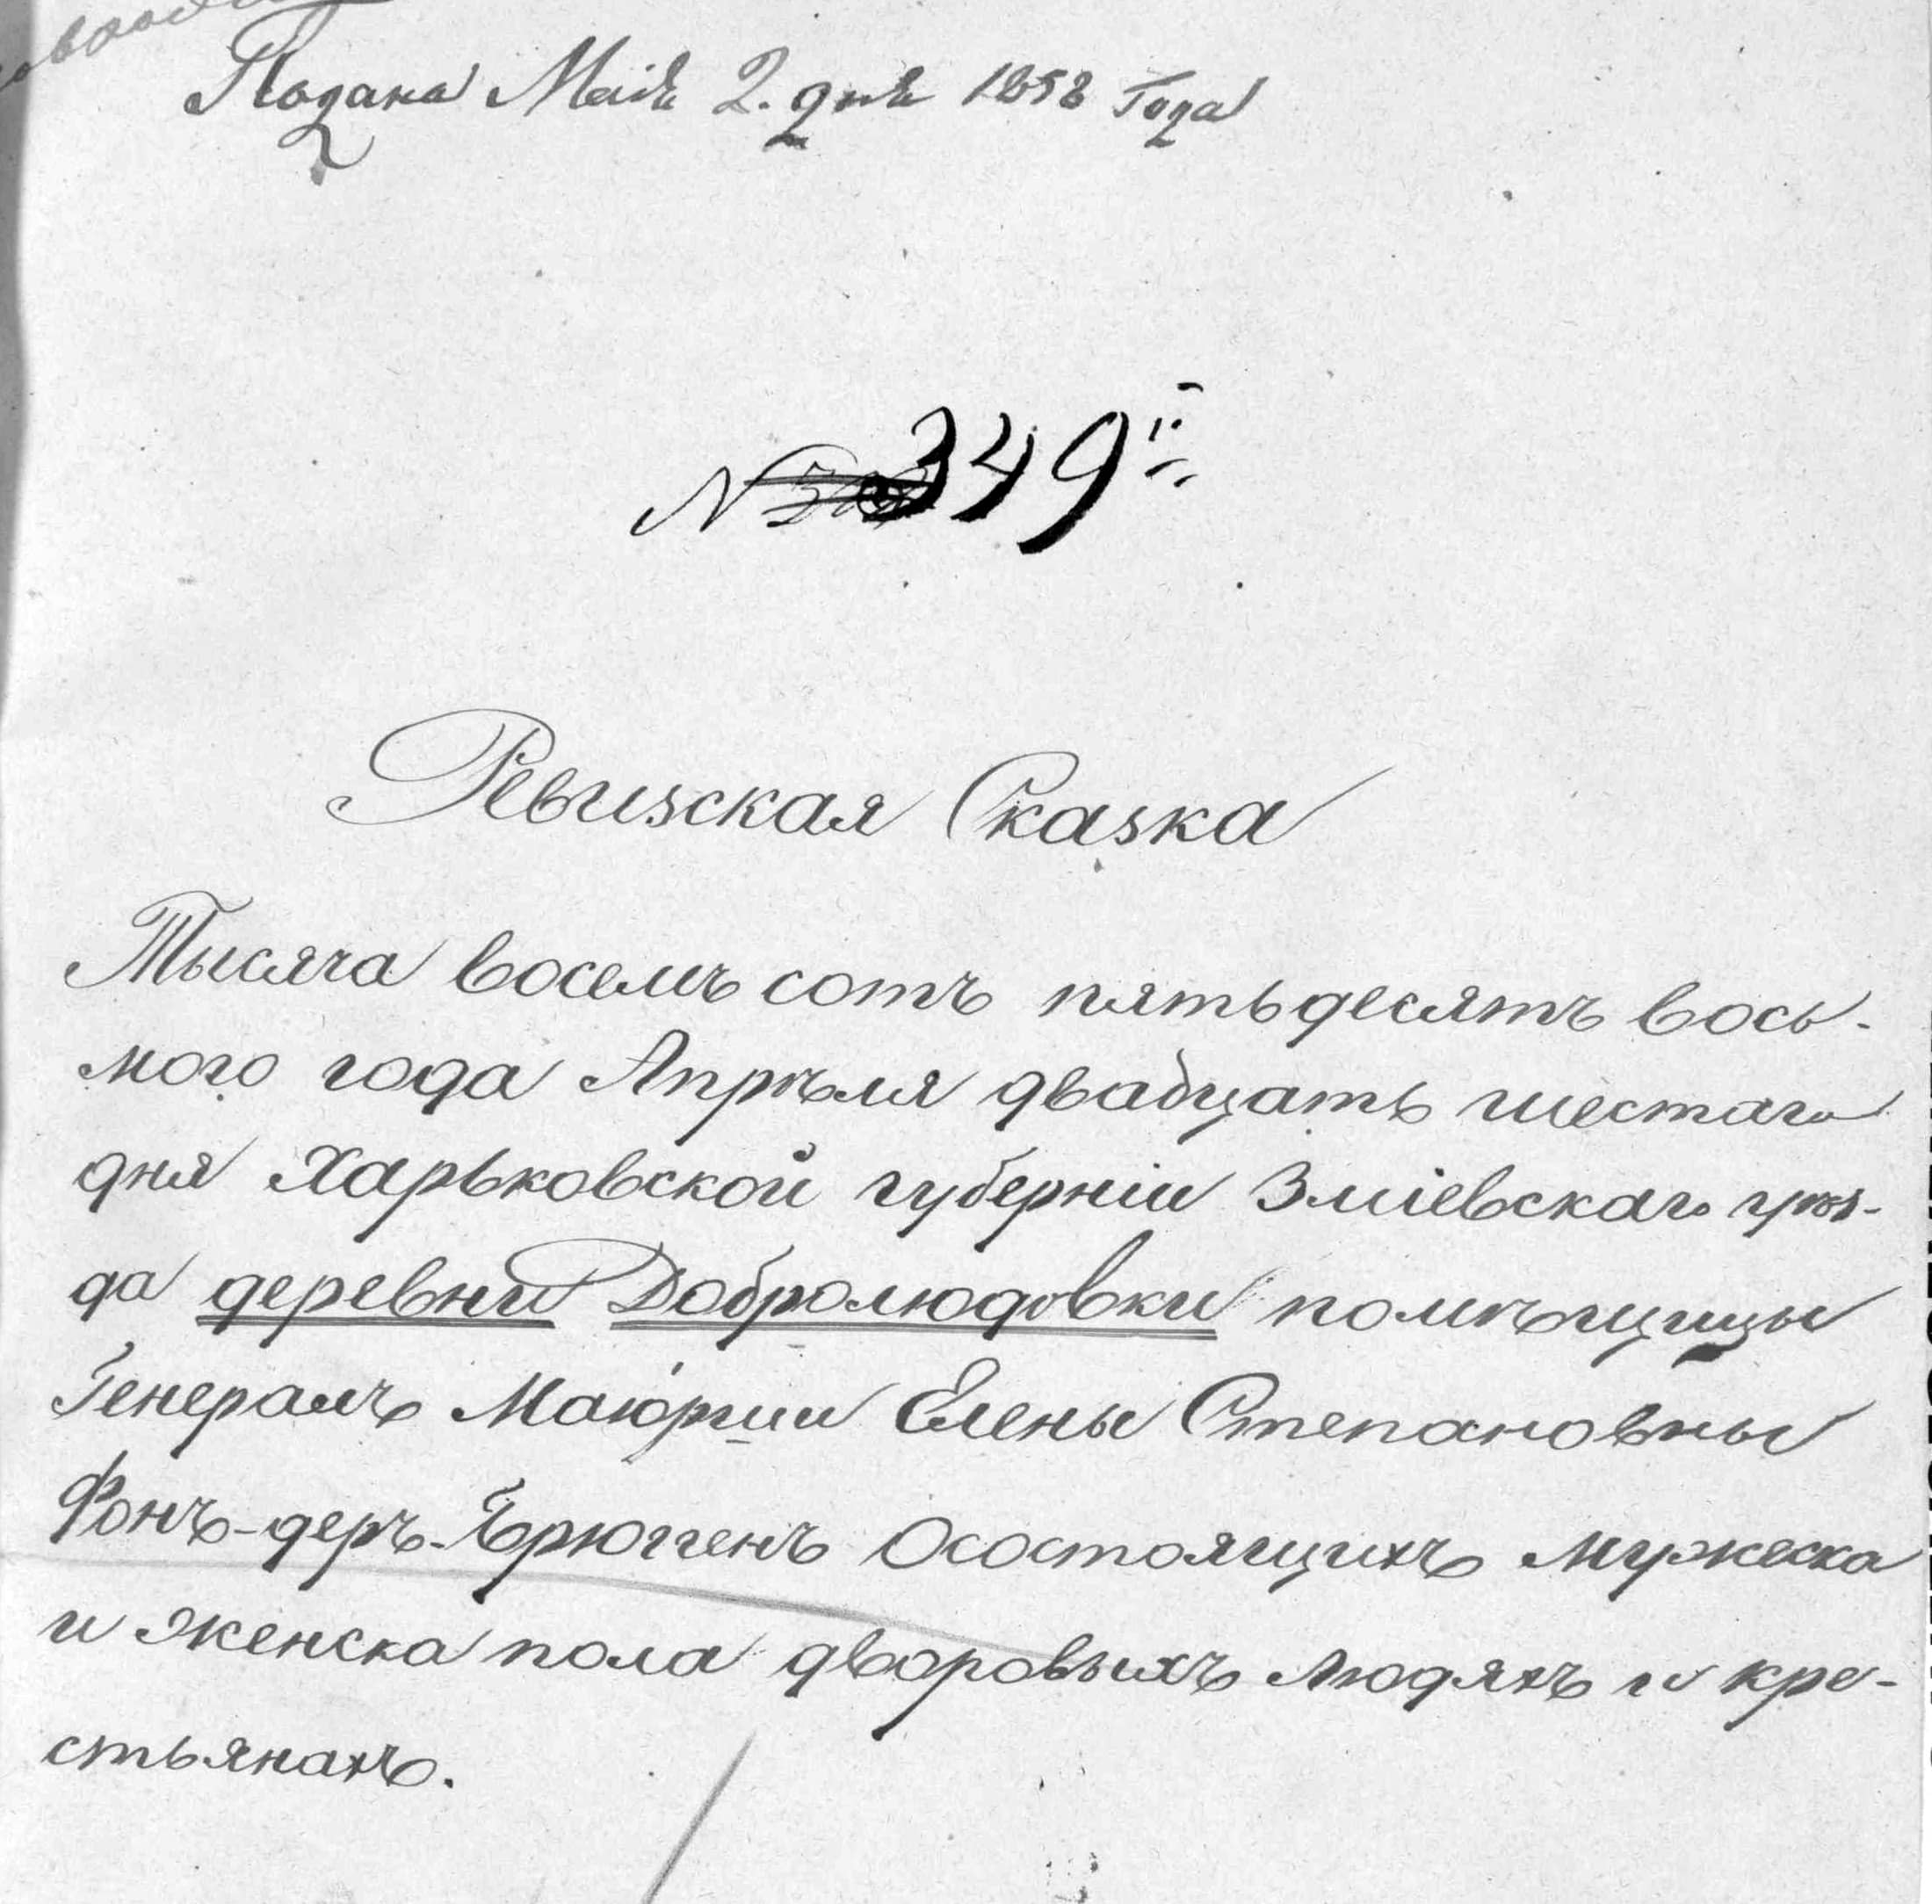 Подана Маія 2. дня 1858 Года
N 349
Ревизская Сказка
Тысяча восемь сотъ пятьдесятъ вось-
мого года Апрѣля двадцать шестаго
дня Харьковской губерніи Зміевскаго уѣз-
да деревни Добролюдовки помѣщицы
Генералъ Маіорши Елены Степановны
Фонъ-деръ-Брюггенъ О состоящихъ мужеска
и женска пола дворовыхъ людяхъ и кре-
стьянахъ.